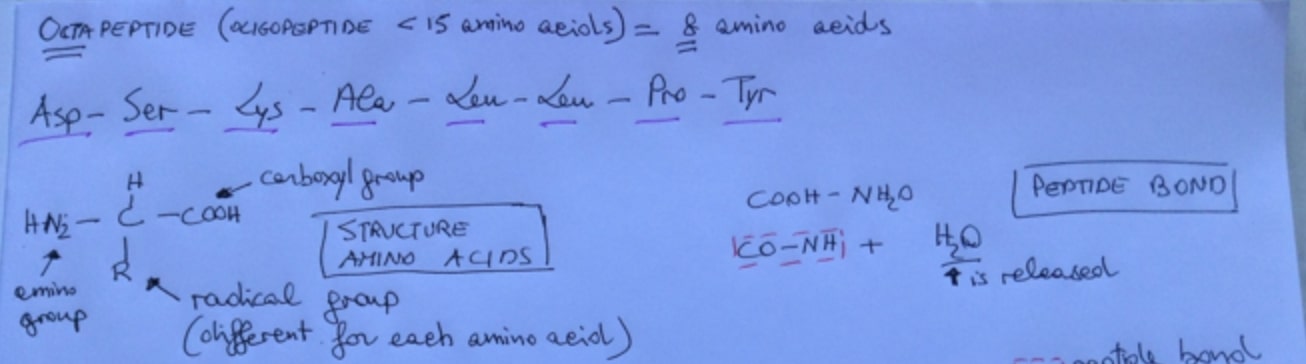 OCTAPEPTIDE (OLIGOPEPTIDE < 15 amino acids) = 8 amino acids
Asp - Ser - Lys - Ala - Leu - Leu - Pro - Tyr
H
carboxyl group
HN₂ - C - COOH
R
amino group
radical group
(different for each amino acid)
STRUCTURE
AMINO ACIDS
COOH - NH₂O
CO-NH + H₂O
↑ is released
PEPTIDE BOND
bond